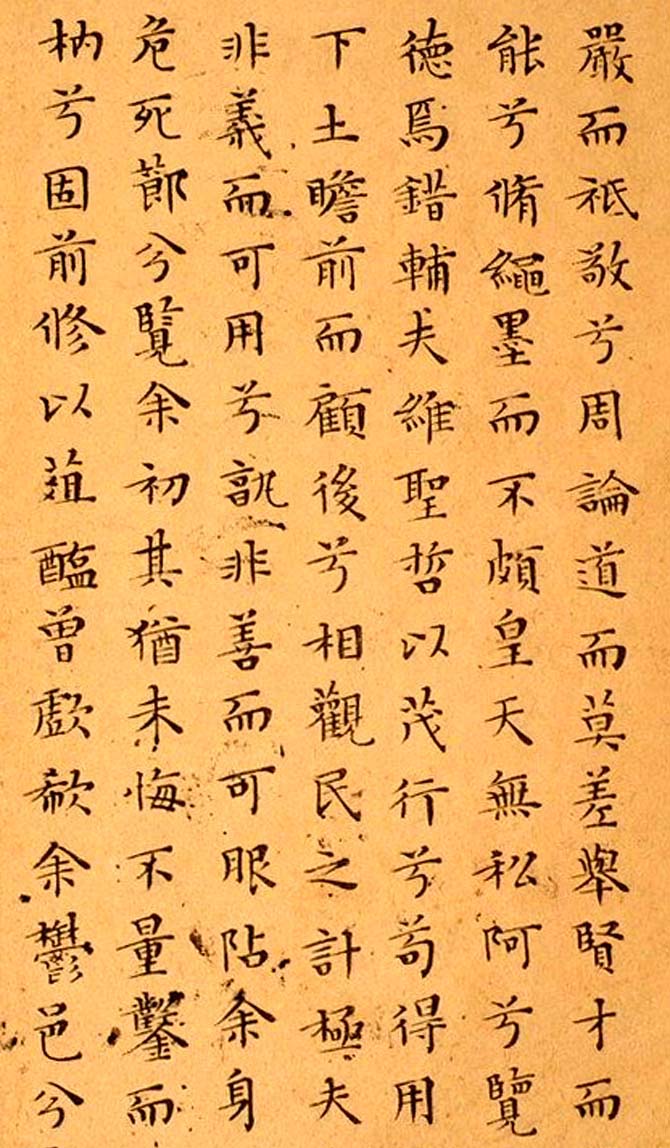 嚴而祗敬兮周論道而莫差舉賢才而
能兮脩繩墨而不頗皇天無私阿兮覽
德焉錯輔夫維聖哲以茂行兮苟得用
下土瞻前而顧後兮相觀民之計極夫
非義而可用兮孰非善而可服阽余身
危死節兮覽余初其猶未悔不量鑿而
枘兮固前修以菹醢曾歔欷余鬱邑兮